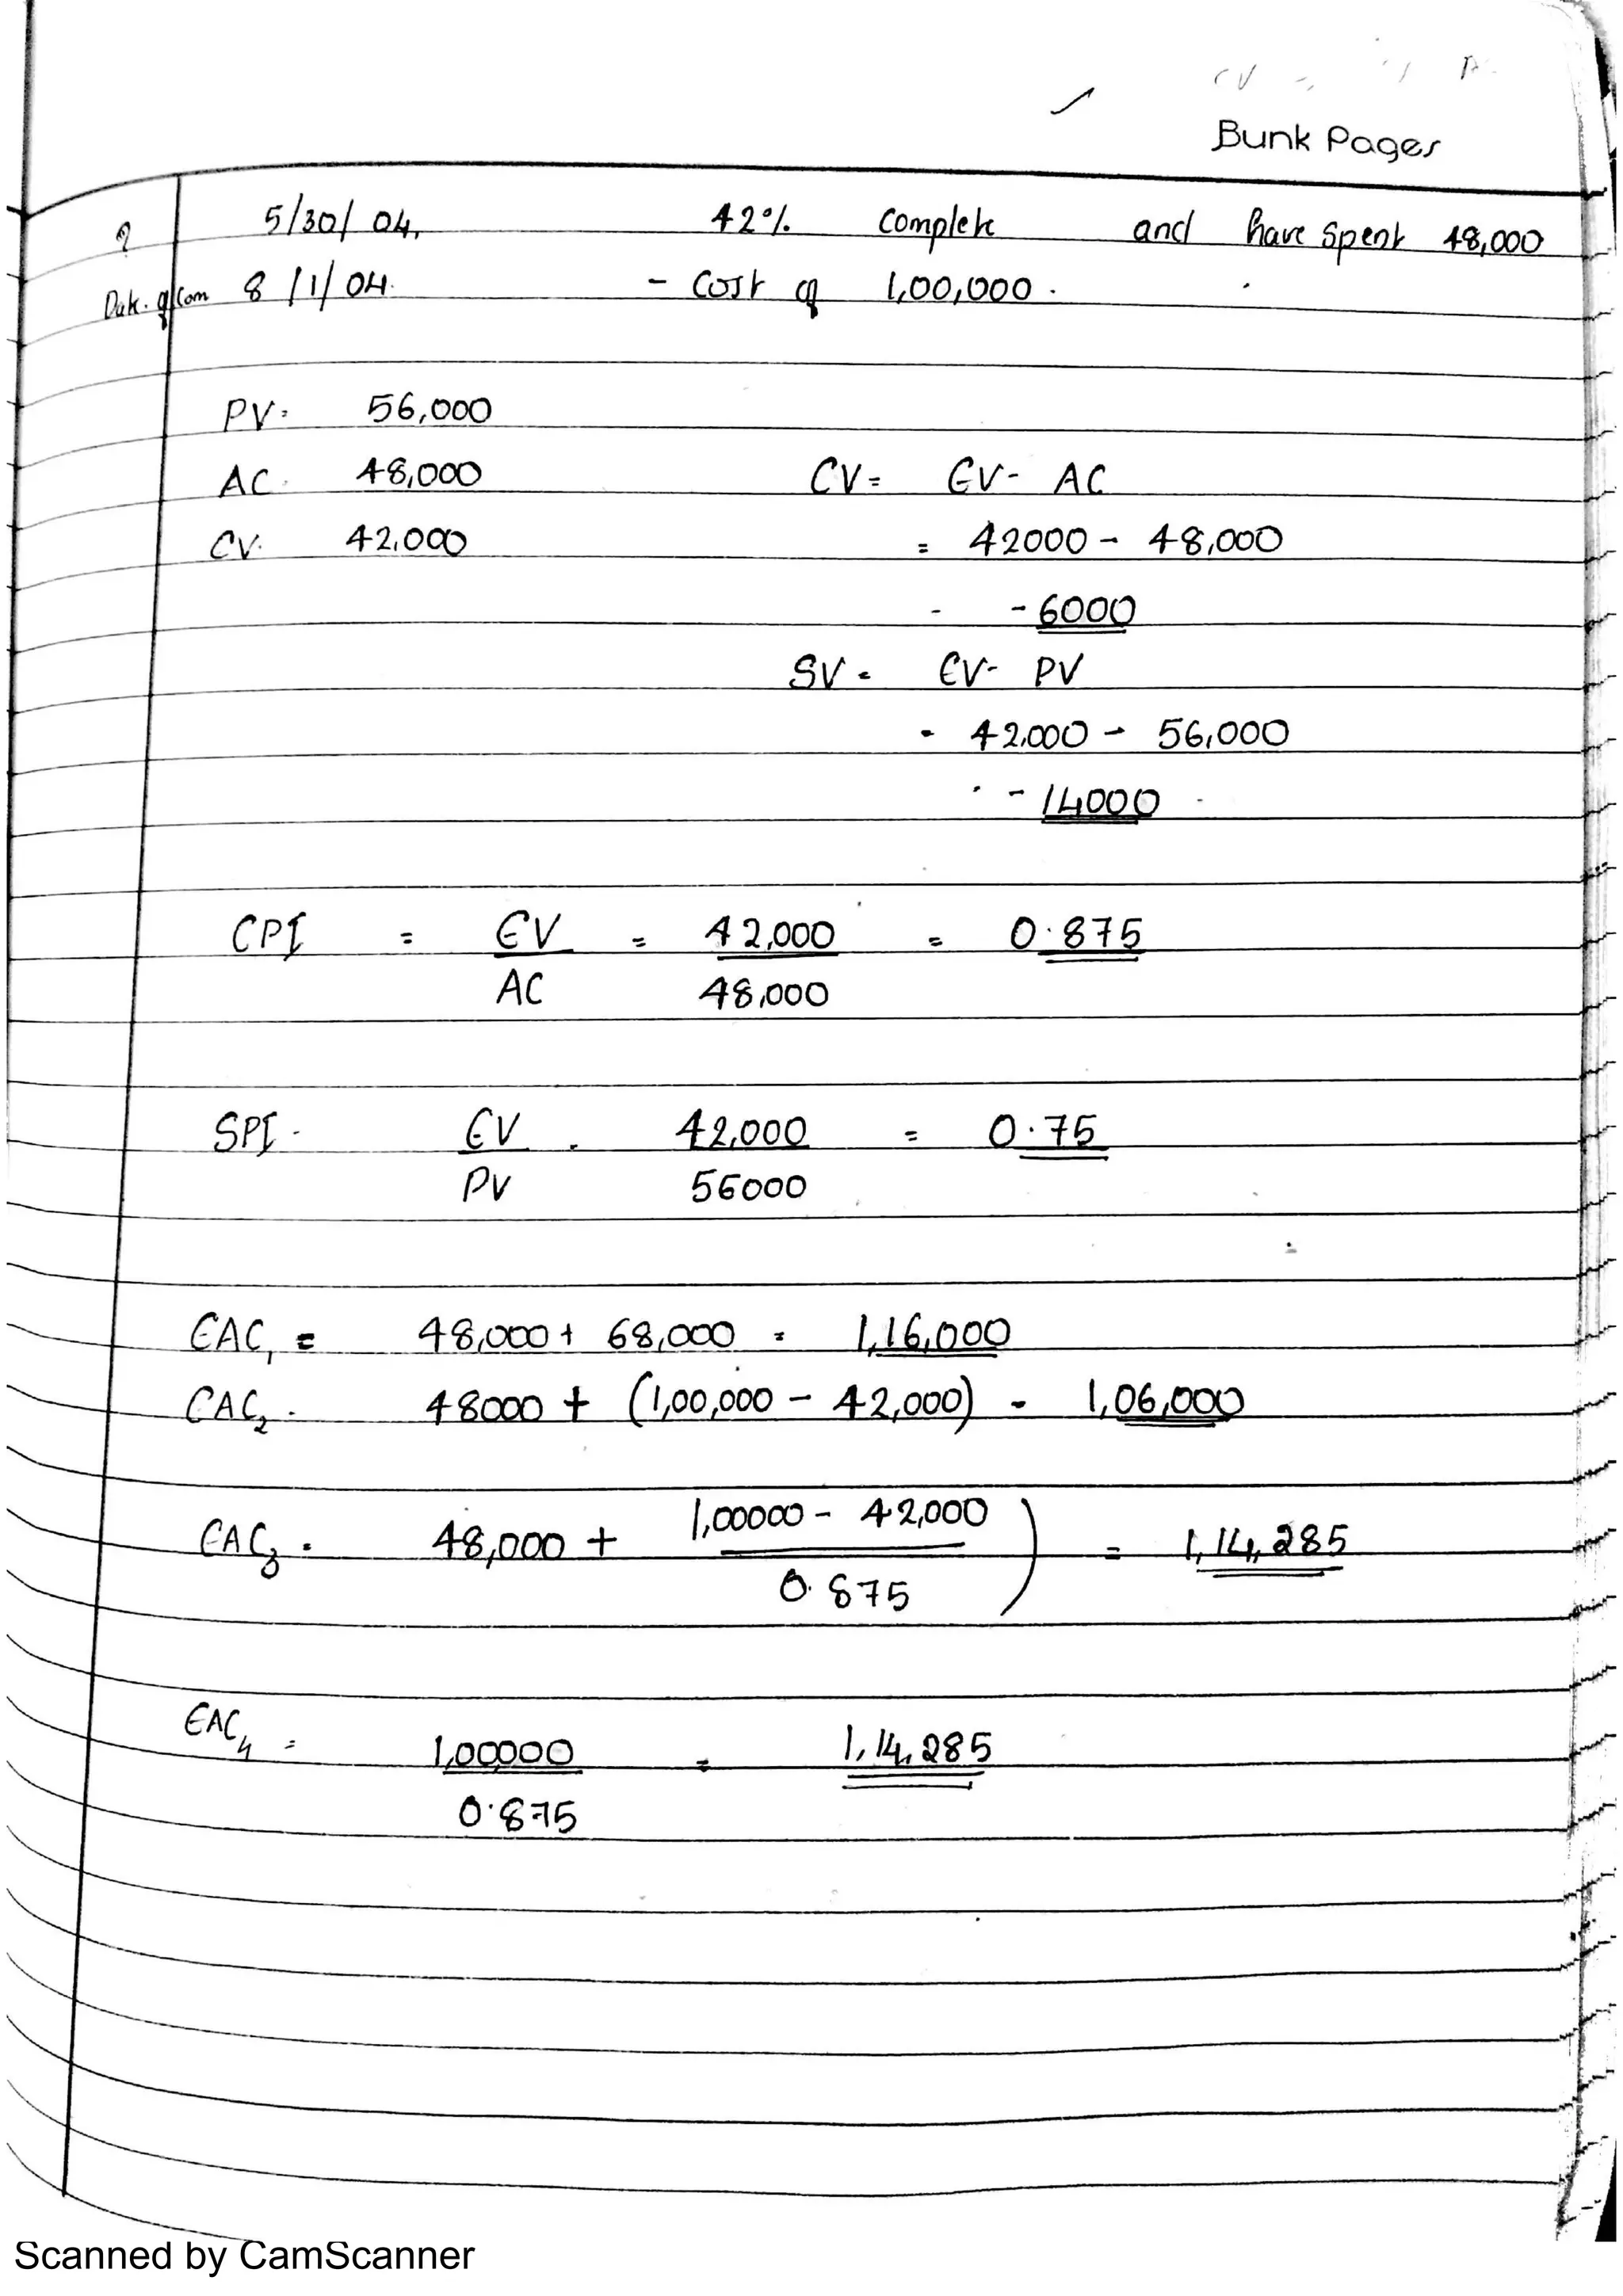 Bunk Pages
? 5/30/04, 42% Complete and have spent 48,000
Date. of Com 8/1/04. - Cost of 1,00,000.
PV= 56,000
AC. 48,000 CV= EV- AC
EV. 42,000 = 42000 - 48,000
- -6000
SV = EV- PV
= 42,000 - 56,000
- 14000
CPI = EV = 42,000 = 0.875
AC 48,000
SPI - EV 42,000 = 0.75
PV 56000
EAC1 = 48,000 + 68,000 = 1,16,000
EAC2 - 48000 + (1,00,000 - 42,000) = 1,06,000
EAC3 = 48,000 + 1,00000 - 42,000 ) = 1,14,285
0.875
EAC4 = 1,00,000 = 1,14,285
0.875
Scanned by CamScanner